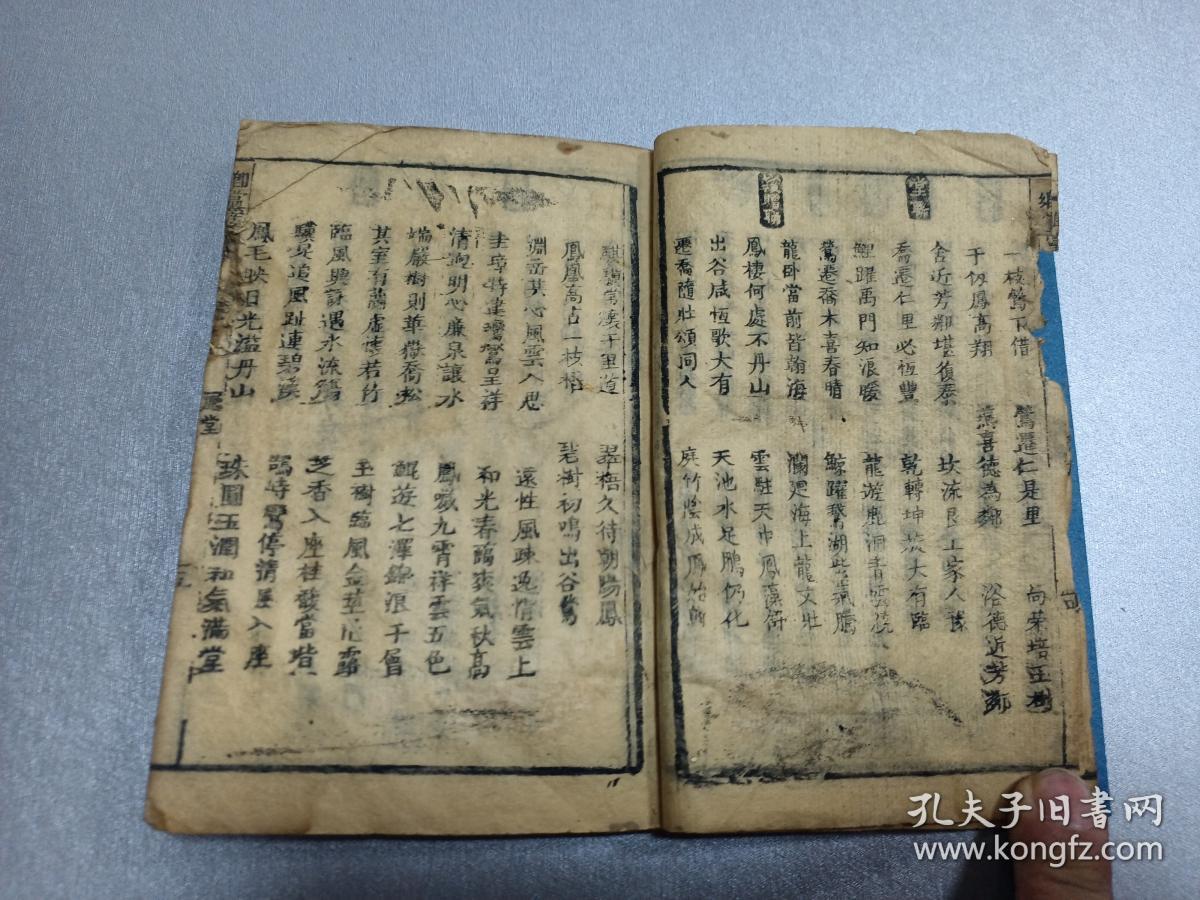 一枝鶯下借
鶯遷仁是里
尚荣培玉樹
千仭鳳高翔
燕喜德為鄰
浴德近芳鄰
堂聯
舍近芳鄰堪復泰
坎流艮上家人
喬遷仁里必恒豐
乾轉坤大有臨
鯉躍禹門知浪暖
龍遊鹿洞青雲
贈聯
鶯遷喬木喜春晴
鯨躍鵞湖紫氣騰
龍卧當前皆翰海
瀾廻海上龍文壯
鳳棲何處不丹山
雲駐天巾鳳藻
出谷咸恆歌大有
天池水足鵬仍化
遷喬隨壯頌同人
庭竹陰成鳳
千里道
翠梧久待朝陽鳳
鳳凰高占一枝梧
碧樹初鳴出谷鶯
淵岳其心風雲入思
遠性風疎逸情雲上
圭璋特達鸞鶯呈祥
和光春靄爽氣秋高
清明心廉泉讓水
鳳噦九霄祥雲五色
端嚴樹則華嶽喬松
鯤遊七澤錦浪千層
其室有蘭虛懷若竹
玉樹臨風金莖
臨風興詠遇水流觴
芝香入座桂馥當堦
驥足追風趾連碧溪
鵠峙鸞停清風入座
鳳毛映日光溢丹山
珠圓玉潤和氣滿堂
孔夫子旧書网
www.kongfz.com